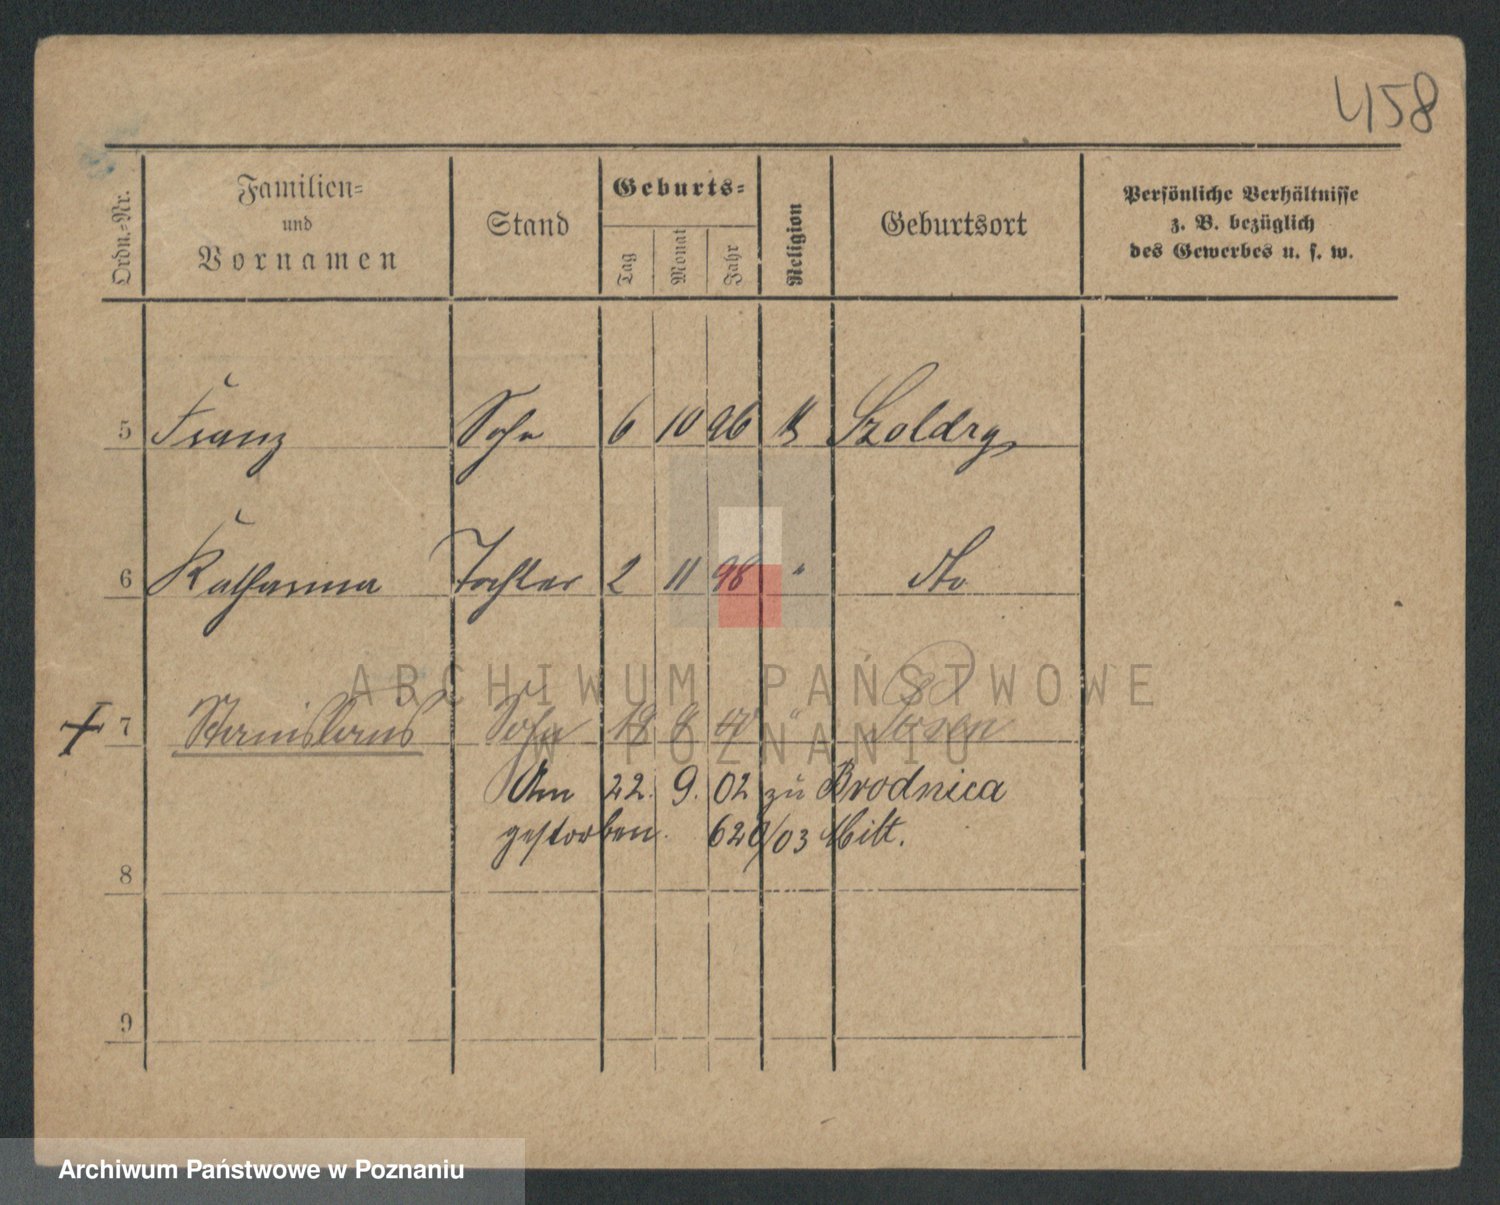 458
Ordn.-Nr.
Familien-
und
Vornamen
Stand
Geburts-
Tag
Monat
Jahr
Religion
Geburtsort
Persönliche Verhältnisse
z. B. bezüglich
des Gewerbes u. s. w.
5 Franz Sohn 6 10 96 K Szoldry
6 Katharina Tochter 2 11 98 " do
+ 7 Stanislaus Sohn 18 8 " Posen
Am 22. 9. 02 zu Brodnica
gestorben. 620/03 Milt.
8
9
ARCHIWUM PAŃSTWOWE
W POZNANIU
Archiwum Państwowe w Poznaniu